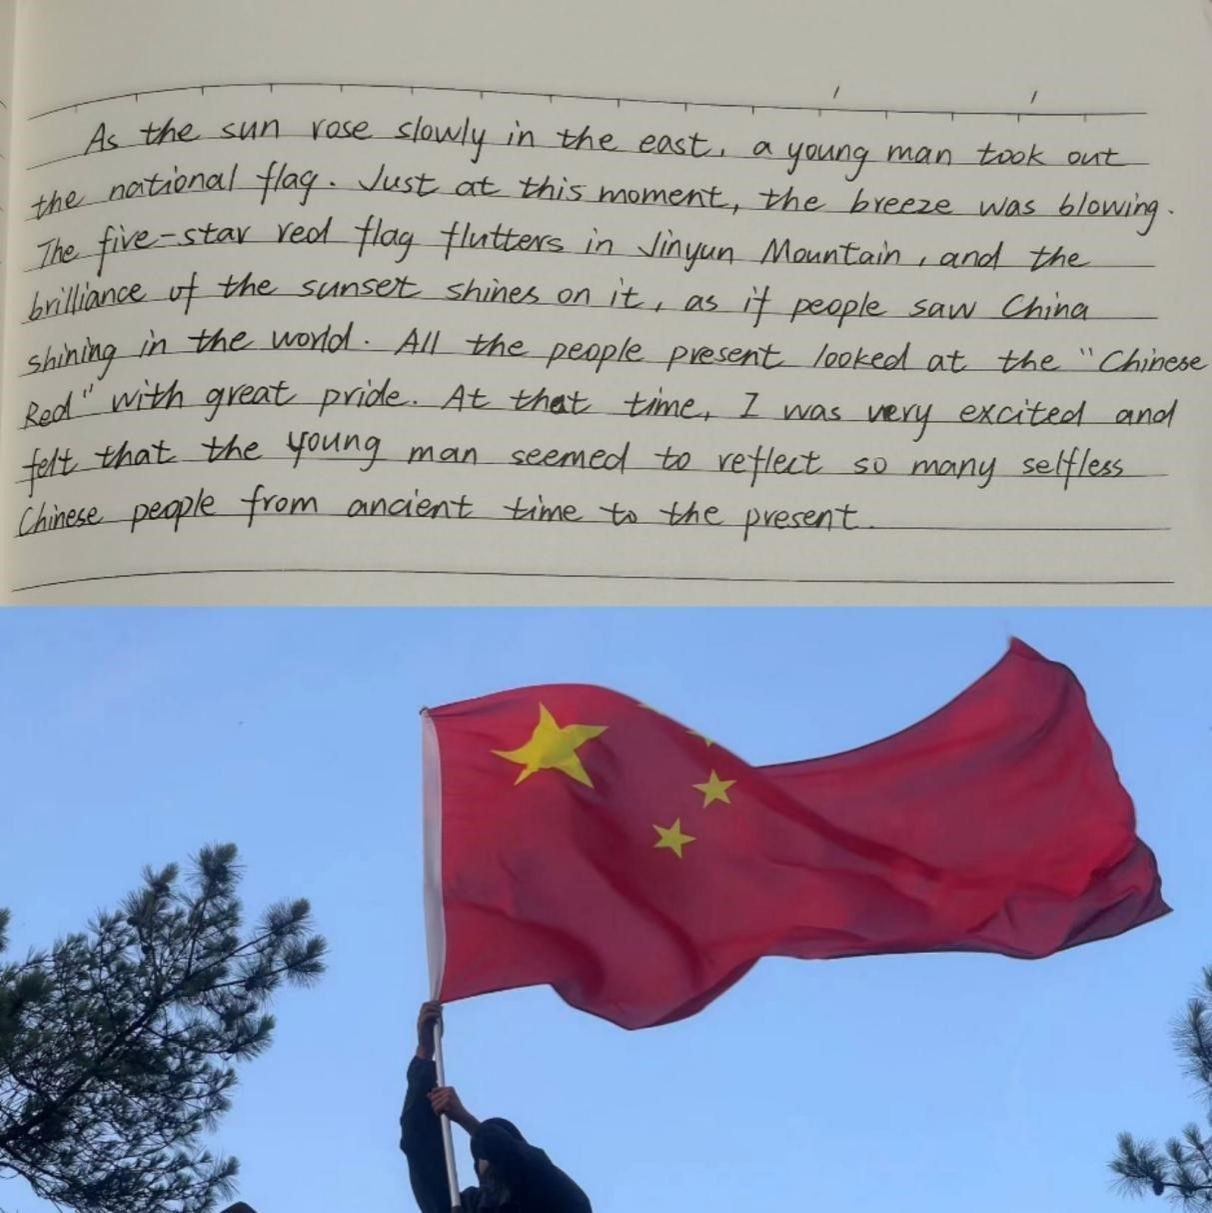 As the sun rose slowly in the east, a young man took out
the national flag. Just at this moment, the breeze was blowing.
The five-star red flag flutters in Jinyun Mountain, and the
brilliance of the sunset shines on it, as if people saw China
shining in the world. All the people present looked at the "Chinese
Red" with great pride. At that time, I was very excited and
felt that the young man seemed to reflect so many selfless
Chinese people from ancient time to the present.